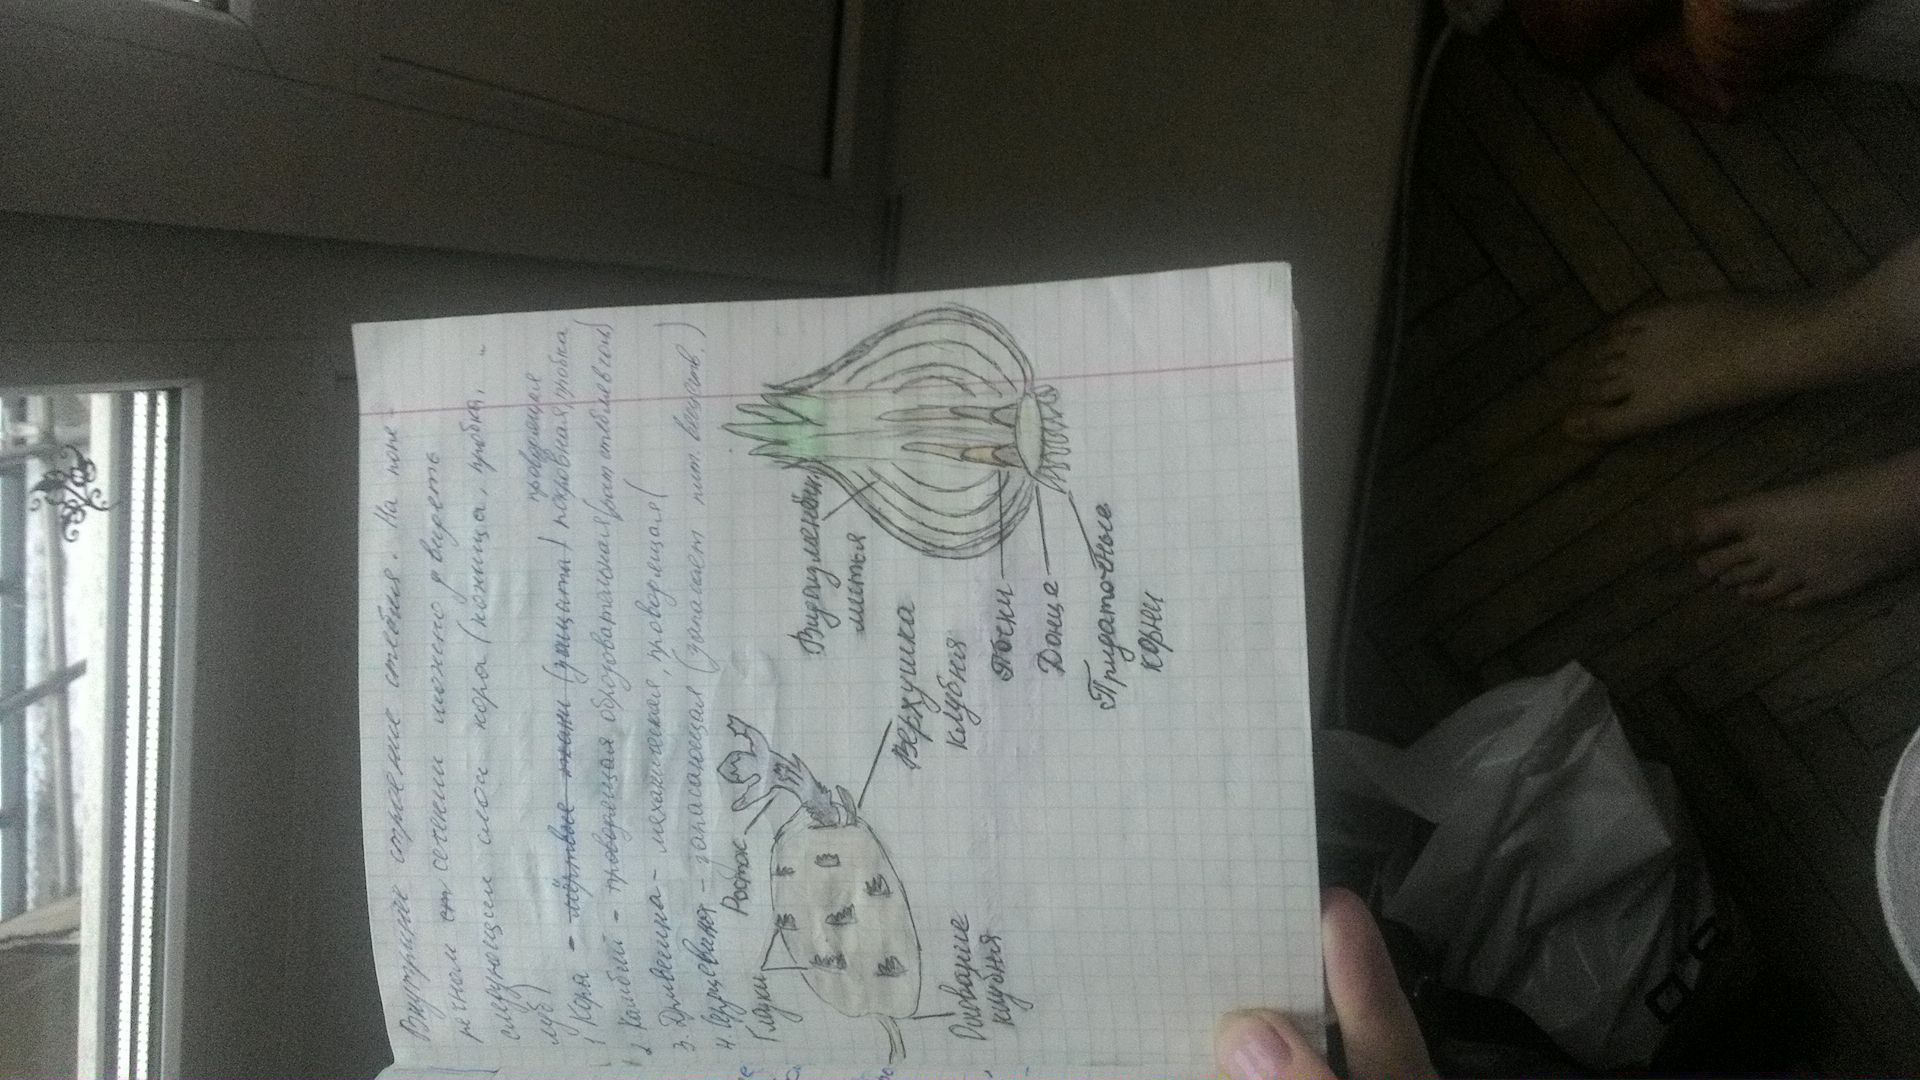 Внутрение строение стебля. На попе-
речном ст сечении можно увидеть
следующие слои кора (кожица, пробка,
луб)
проводящая
1 Кора - мёртвые ткани (защита) покровная, пробка
2 Камбий - проводящая, образовательная (рост стебля в толщ)
3. Древесина - механическая, проводящая (
4. Сердцевина - запасающая (запасает пит. веществ.)
Глазки
Росток
Верхушка
клубня
Основание
клубня
Видоизменён.
листья
Почки
Донце
Придаточные
корни